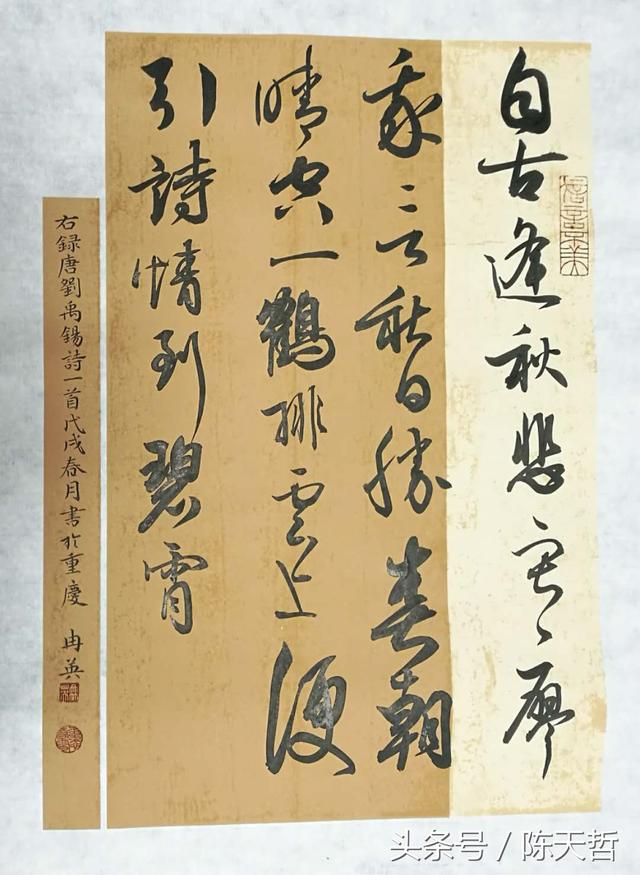 自古逢秋悲寂廖
我言秋日勝春朝
晴空一鶴排雲上便
引詩情到碧霄
右録唐劉禹錫詩一首戊戌春月書於重慶 冉英
头条号 / 陈天哲